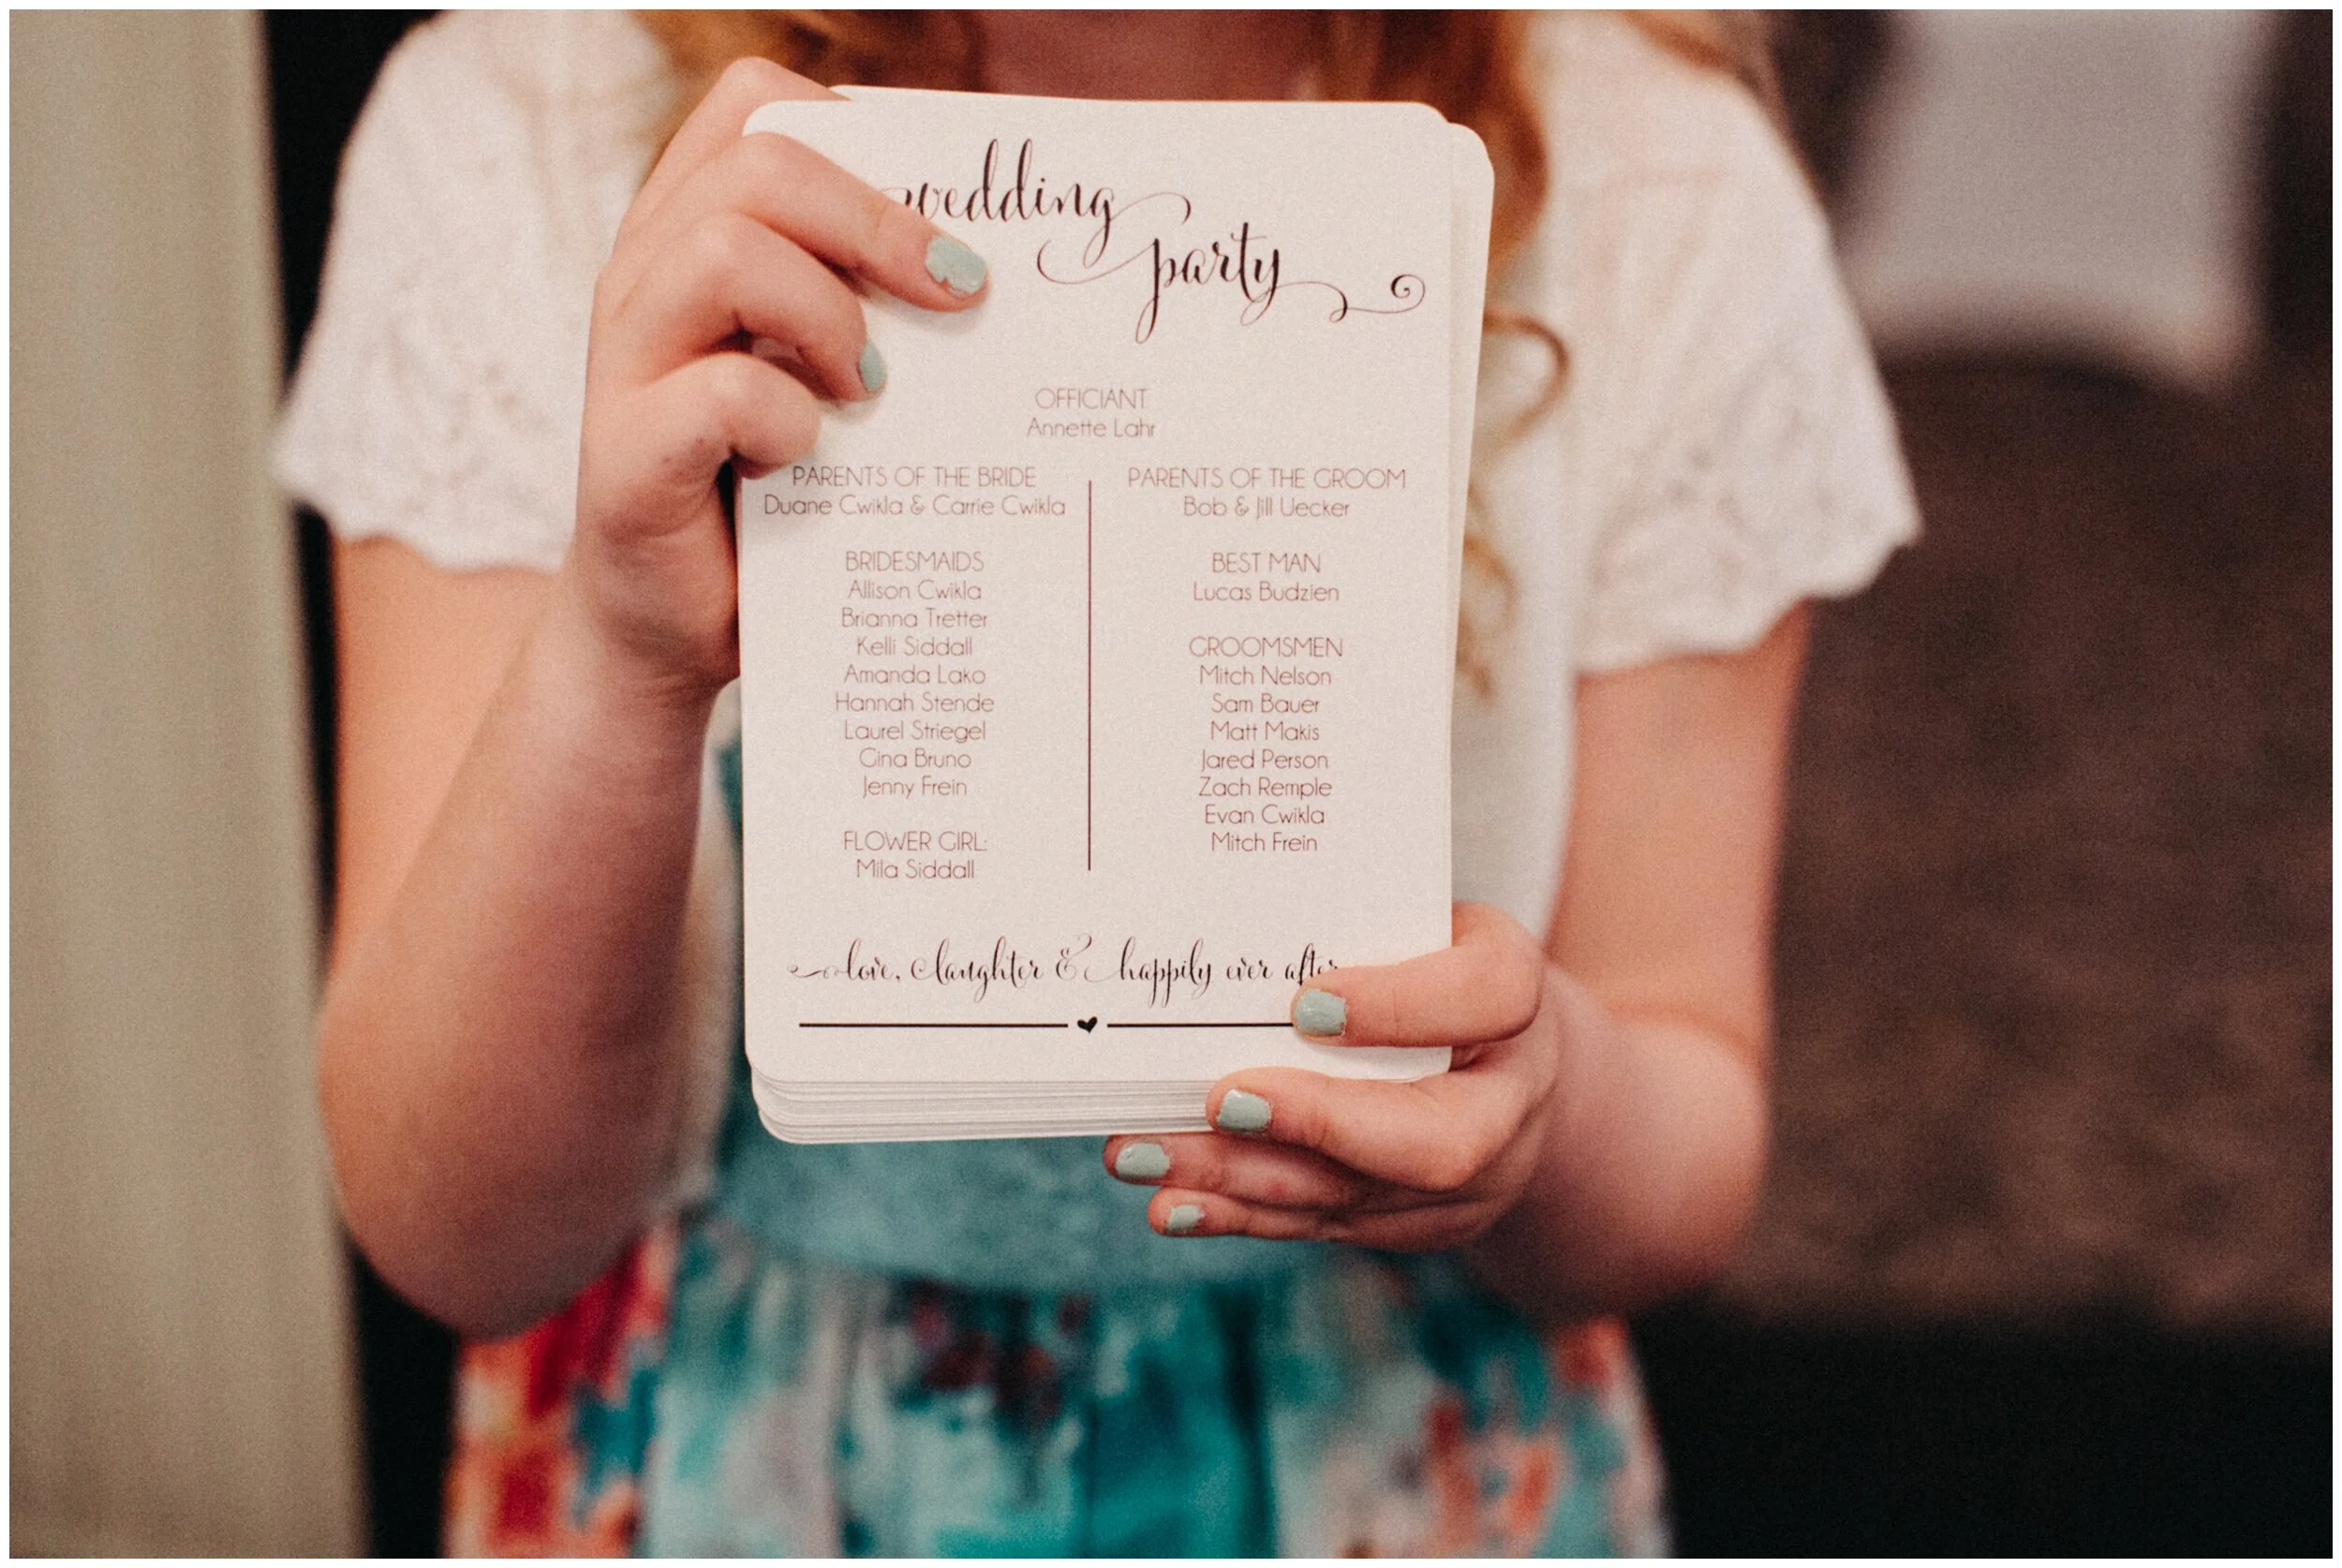 wedding
party
OFFICIANT
Annette Lahr
PARENTS OF THE BRIDE
Duane Cwikla & Carrie Cwikla
BRIDESMAIDS
Allison Cwikla
Brianna Tretter
Kelli Siddall
Amanda Lako
Hannah Stende
Laurel Striegel
Gina Bruno
Jenny Frein
FLOWER GIRL:
Mila Siddall
PARENTS OF THE GROOM
Bob & Jill Uecker
BEST MAN
Lucas Budzien
GROOMSMEN
Mitch Nelson
Sam Bauer
Matt Makis
Jared Person
Zach Remple
Evan Cwikla
Mitch Frein
love, laughter & happily ever after